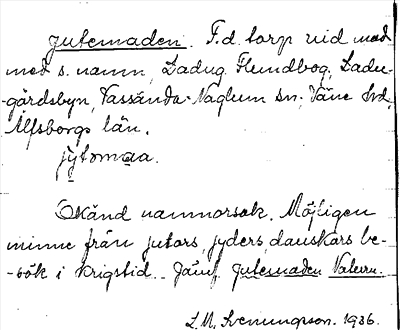 Jutemaden. F.d. torp vid mad
med s. namn, Ladug. Flundbog, Ladu-
gårdsbyn, Vassända-Naglum sn, Väne hd,
Älfsborgs län.
jỳtomaa.
Okänd namnorsak. Möjligen
minne från jutars, jyders, danskars be-
-sök i krigstid. Jämf. Jutemaden Valern.
L. M. Svenungson. 1936.